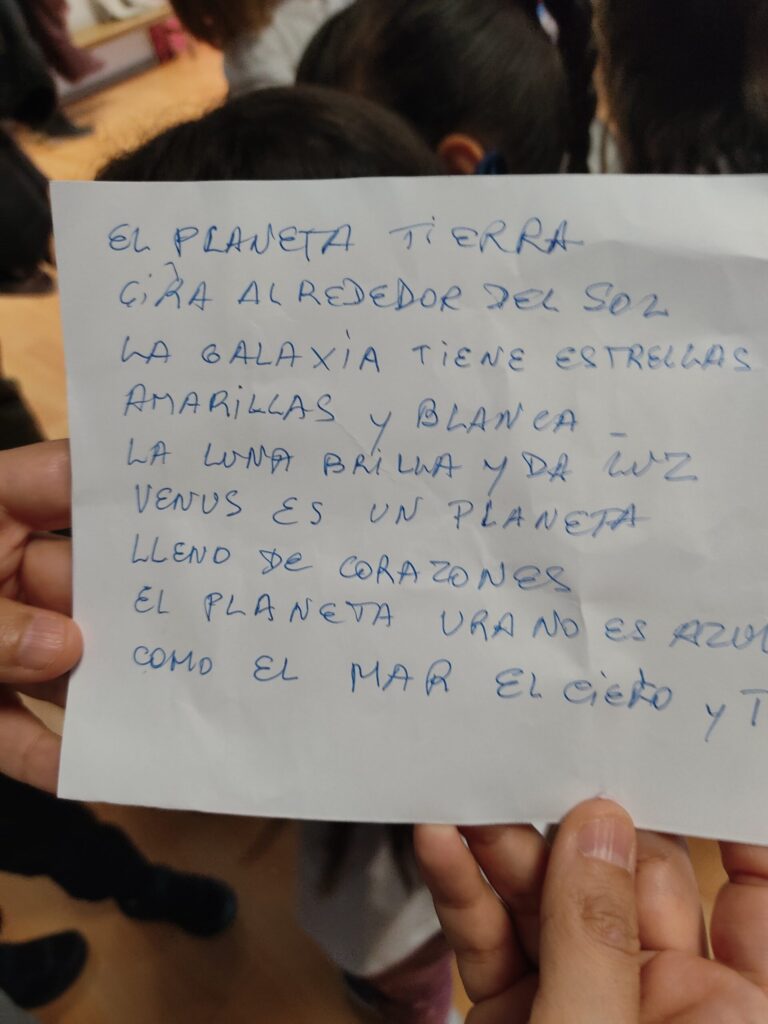 EL PLANETA TIERRA
GIRA ALREDEDOR DEL SOL
LA GALAXIA TIENE ESTRELLAS
AMARILLAS y BLANCA
LA LUNA BRILLA y DA LUZ
VENUS ES UN PLANETA
LLENO DE CORAZONES
EL PLANETA URANO ES AZUL
COMO EL MAR EL CIELO y